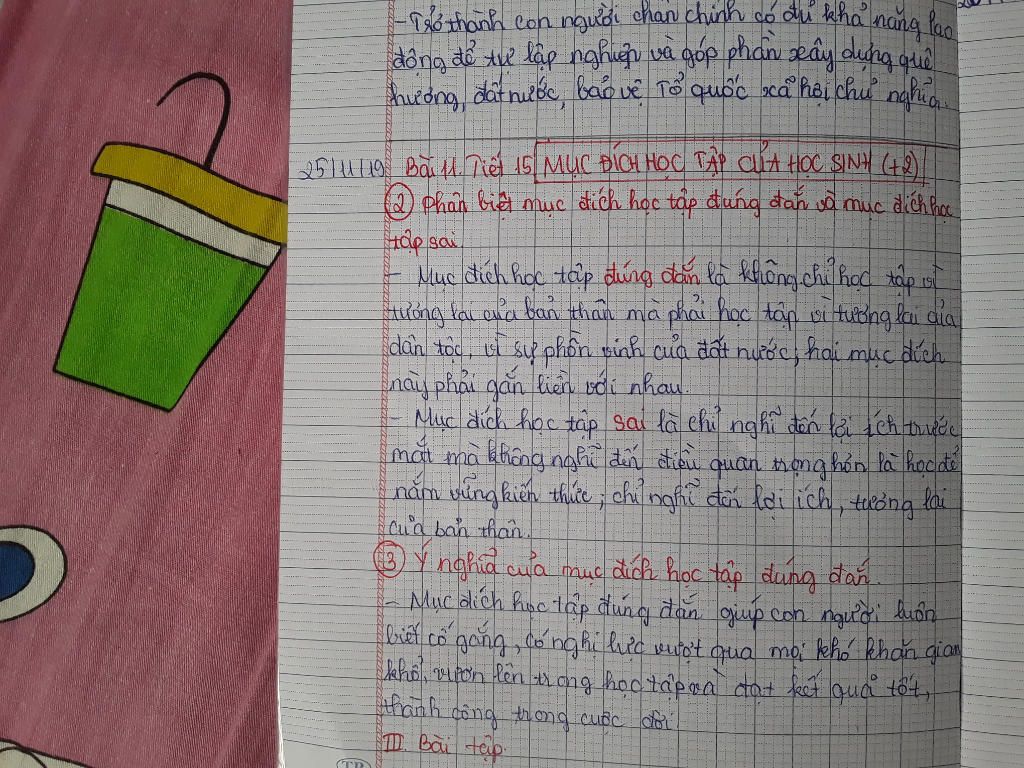 - Trở thành con người chân chính có đủ khả năng lao
động để tự lập nghiệp và góp phần xây dựng quê
hương, đất nước, bảo vệ Tổ quốc xã hội chủ nghĩa.
25/11/19 Bài 11. Tiết 15 MỤC ĐÍCH HỌC TẬP CỦA HỌC SINH (t2)
② Phân biệt mục đích học tập đúng đắn và mục đích học
tập sai.
- Mục đích học tập đúng đắn là không chỉ học tập vì
tương lai của bản thân mà phải học tập vì tương lai của
dân tộc, vì sự phồn vinh của đất nước, hai mục đích
này phải gắn liền với nhau.
- Mục đích học tập sai là chỉ nghĩ đến lợi ích trước
mắt mà không nghĩ đến điều quan trọng hơn là học để
nắm vững kiến thức, chỉ nghĩ đến lợi ích, tương lai
của bản thân.
③ Ý nghĩa của mục đích học tập đúng đắn.
- Mục đích học tập đúng đắn giúp con người luôn
biết cố gắng, có nghị lực vượt qua mọi khó khăn gian
khổ, vươn lên trong học tập và đạt kết quả tốt,
thành công trong cuộc đời
III. Bài tập.